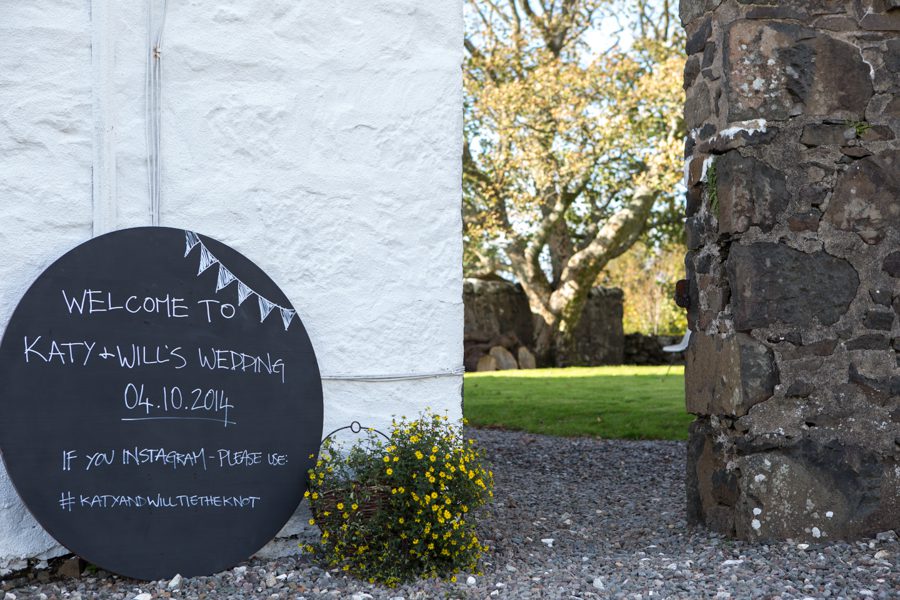 WELCOME TO
KATY & WILL'S WEDDING
04.10.2014
IF YOU INSTAGRAM - PLEASE USE:
#KATYANDWILLTIETHEKNOT